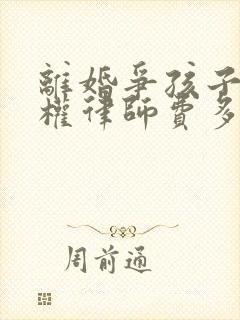 離婚爭孩子
權律師費多
周前通